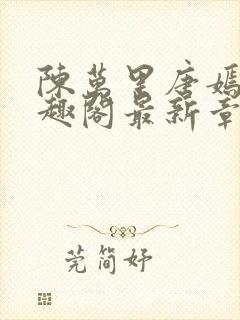 陳萬里唐嫣
趣閣最新章
莞簡妤